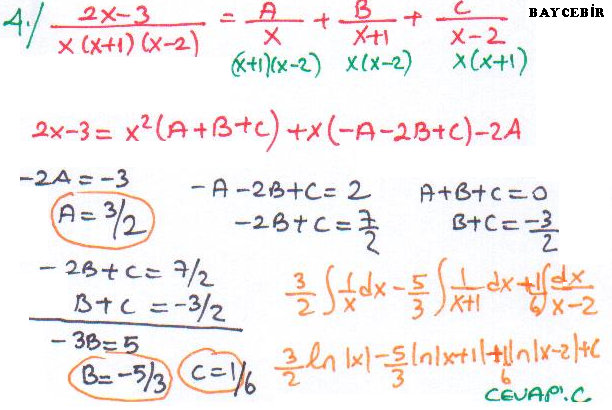 BAYCEBİR
4./ (2x-3)/(x(x+1)(x-2)) = A/x + B/(x+1) + C/(x-2)
(x+1)(x-2) x(x-2) x(x+1)
2x-3 = x²(A+B+C)+x(-A-2B+C)-2A
-2A=-3 -A-2B+C=2 A+B+C=0
A=3/2 -2B+C=7/2 B+C=-3/2
-2B+C=7/2
B+C=-3/2
-3B=5
B=-5/3 C=1/6
3/2 ∫ 1/x dx - 5/3 ∫ 1/(x+1) dx + 1/6 ∫ dx/(x-2)
3/2 ln|x| - 5/3 ln|x+1| + 1/6 ln|x-2| + C
CEVAP: C